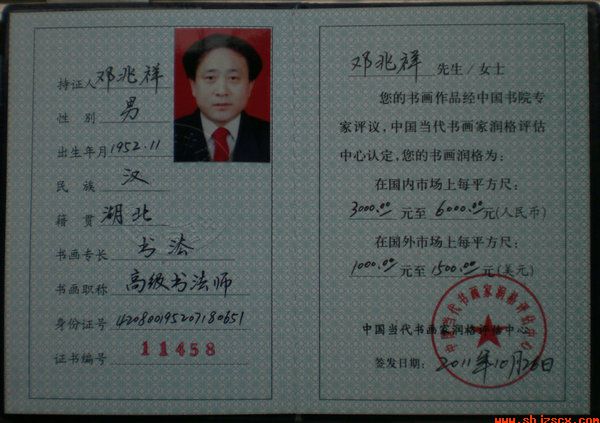 持证人 邓兆祥
性别 男
出生年月 1952.11
民族 汉
籍贯 湖北
书画专长 书法
书画职称 高级书法师
身份证号 420800195207180651
证书编号 11458
邓兆祥 先生/女士
您的书画作品经中国书院专
家评议,中国当代书画家润格评估
中心认定,您的书画润格为:
在国内市场上每平方尺:
3000.00 元至 6000.00 元(人民币)
在国外市场上每平方尺:
1000.00 元至 1500.00 元(美元)
中国当代书画家润格评估中心
中国当代书画家润格评估中心
签发日期: 2011年10月26日
www.shjzscx.com